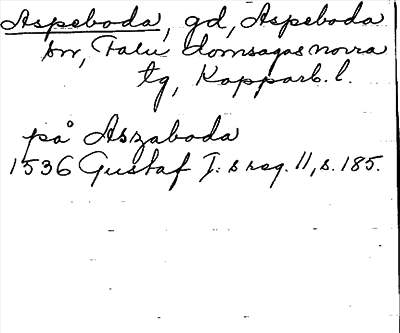 Aspeboda, gd, Aspeboda
sn, Falu domsagas norra
tg, Kopparb. l.
på Aszaboda
1536 Gustaf I:s reg. 11, s. 185.